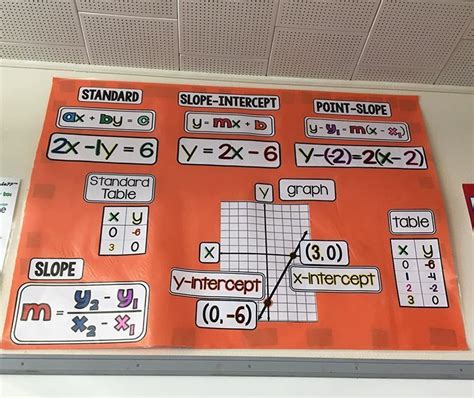 STANDARD
ax + by = c
2x - 1y = 6
SLOPE-INTERCEPT
y = mx + b
y = 2x - 6
POINT-SLOPE
y - y₁ = m(x - x₁)
y-(-2)=2(x-2)
Standard
Table
x y
0 -6
3 0
y graph
x
(3, 0)
y-intercept
x-intercept
(0, -6)
table
x y
0 -6
1 -4
2 -2
3 0
SLOPE
m = y₂ - y₁
x₂ - x₁